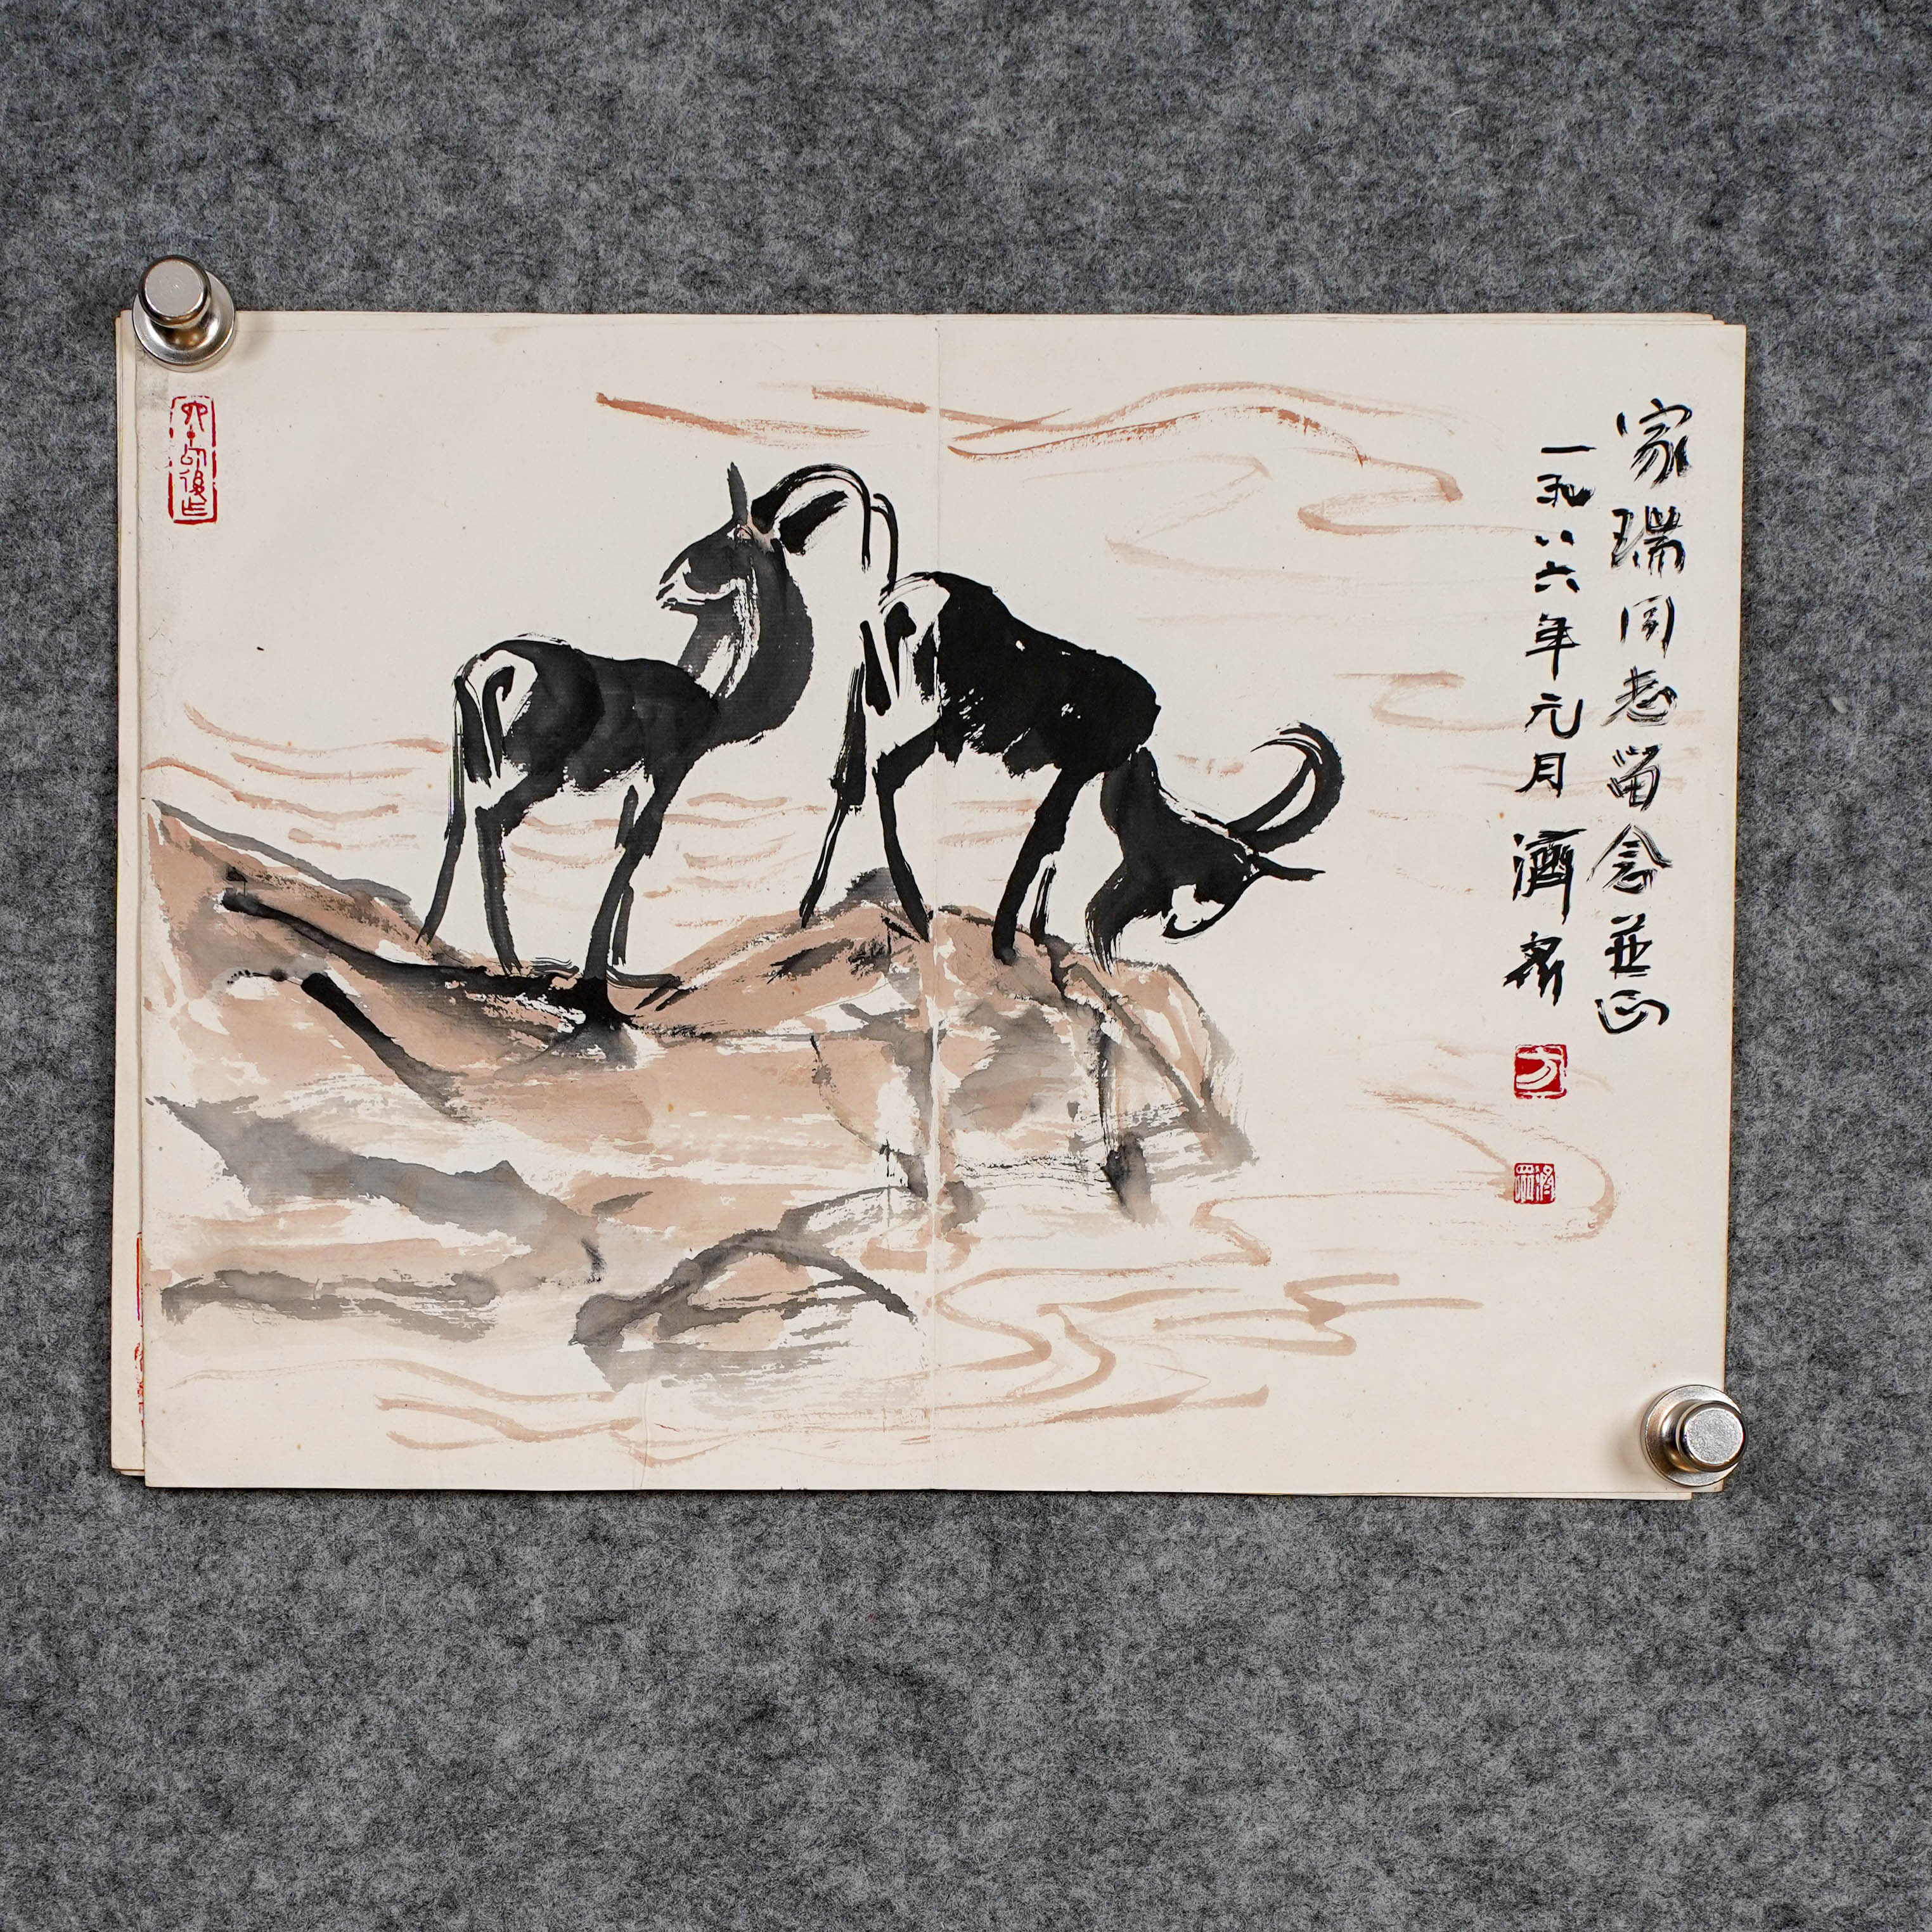 家瑞同志留念並正
一九八六年元月 濟眾
方